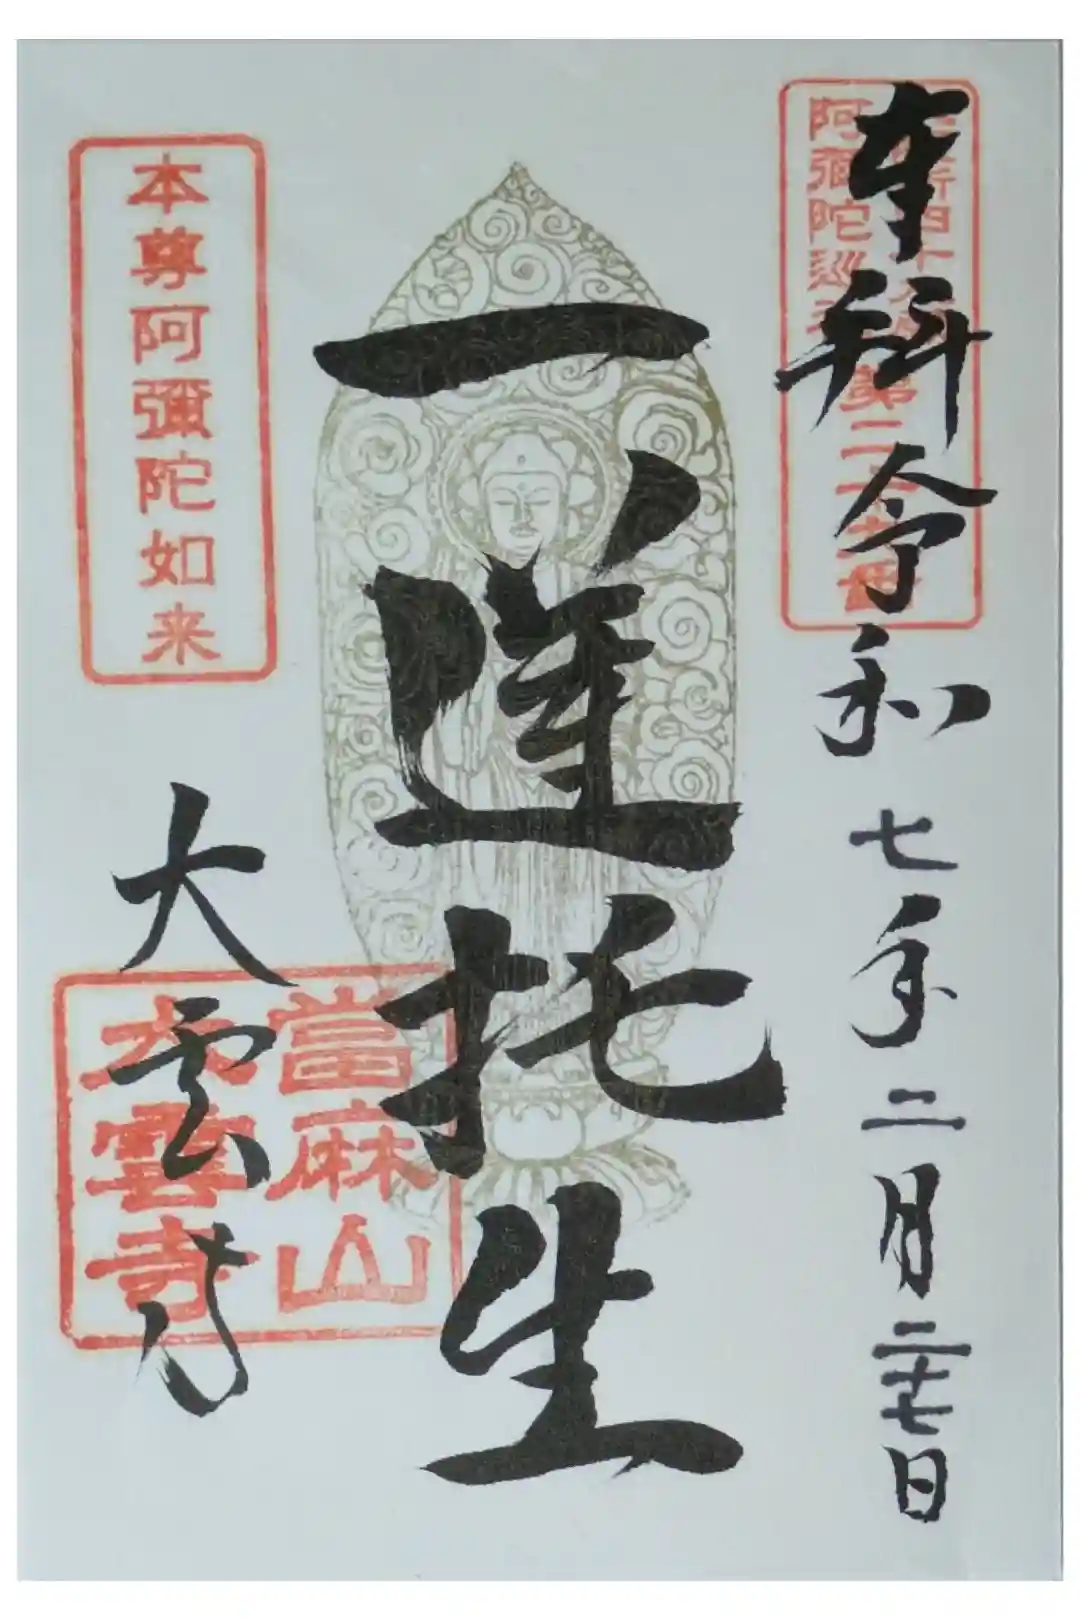 奉拝令和七年二月二十七日
阿彌陀巡
一蓮托生
本尊阿彌陀如来
大雲寺
當麻山
大雲寺